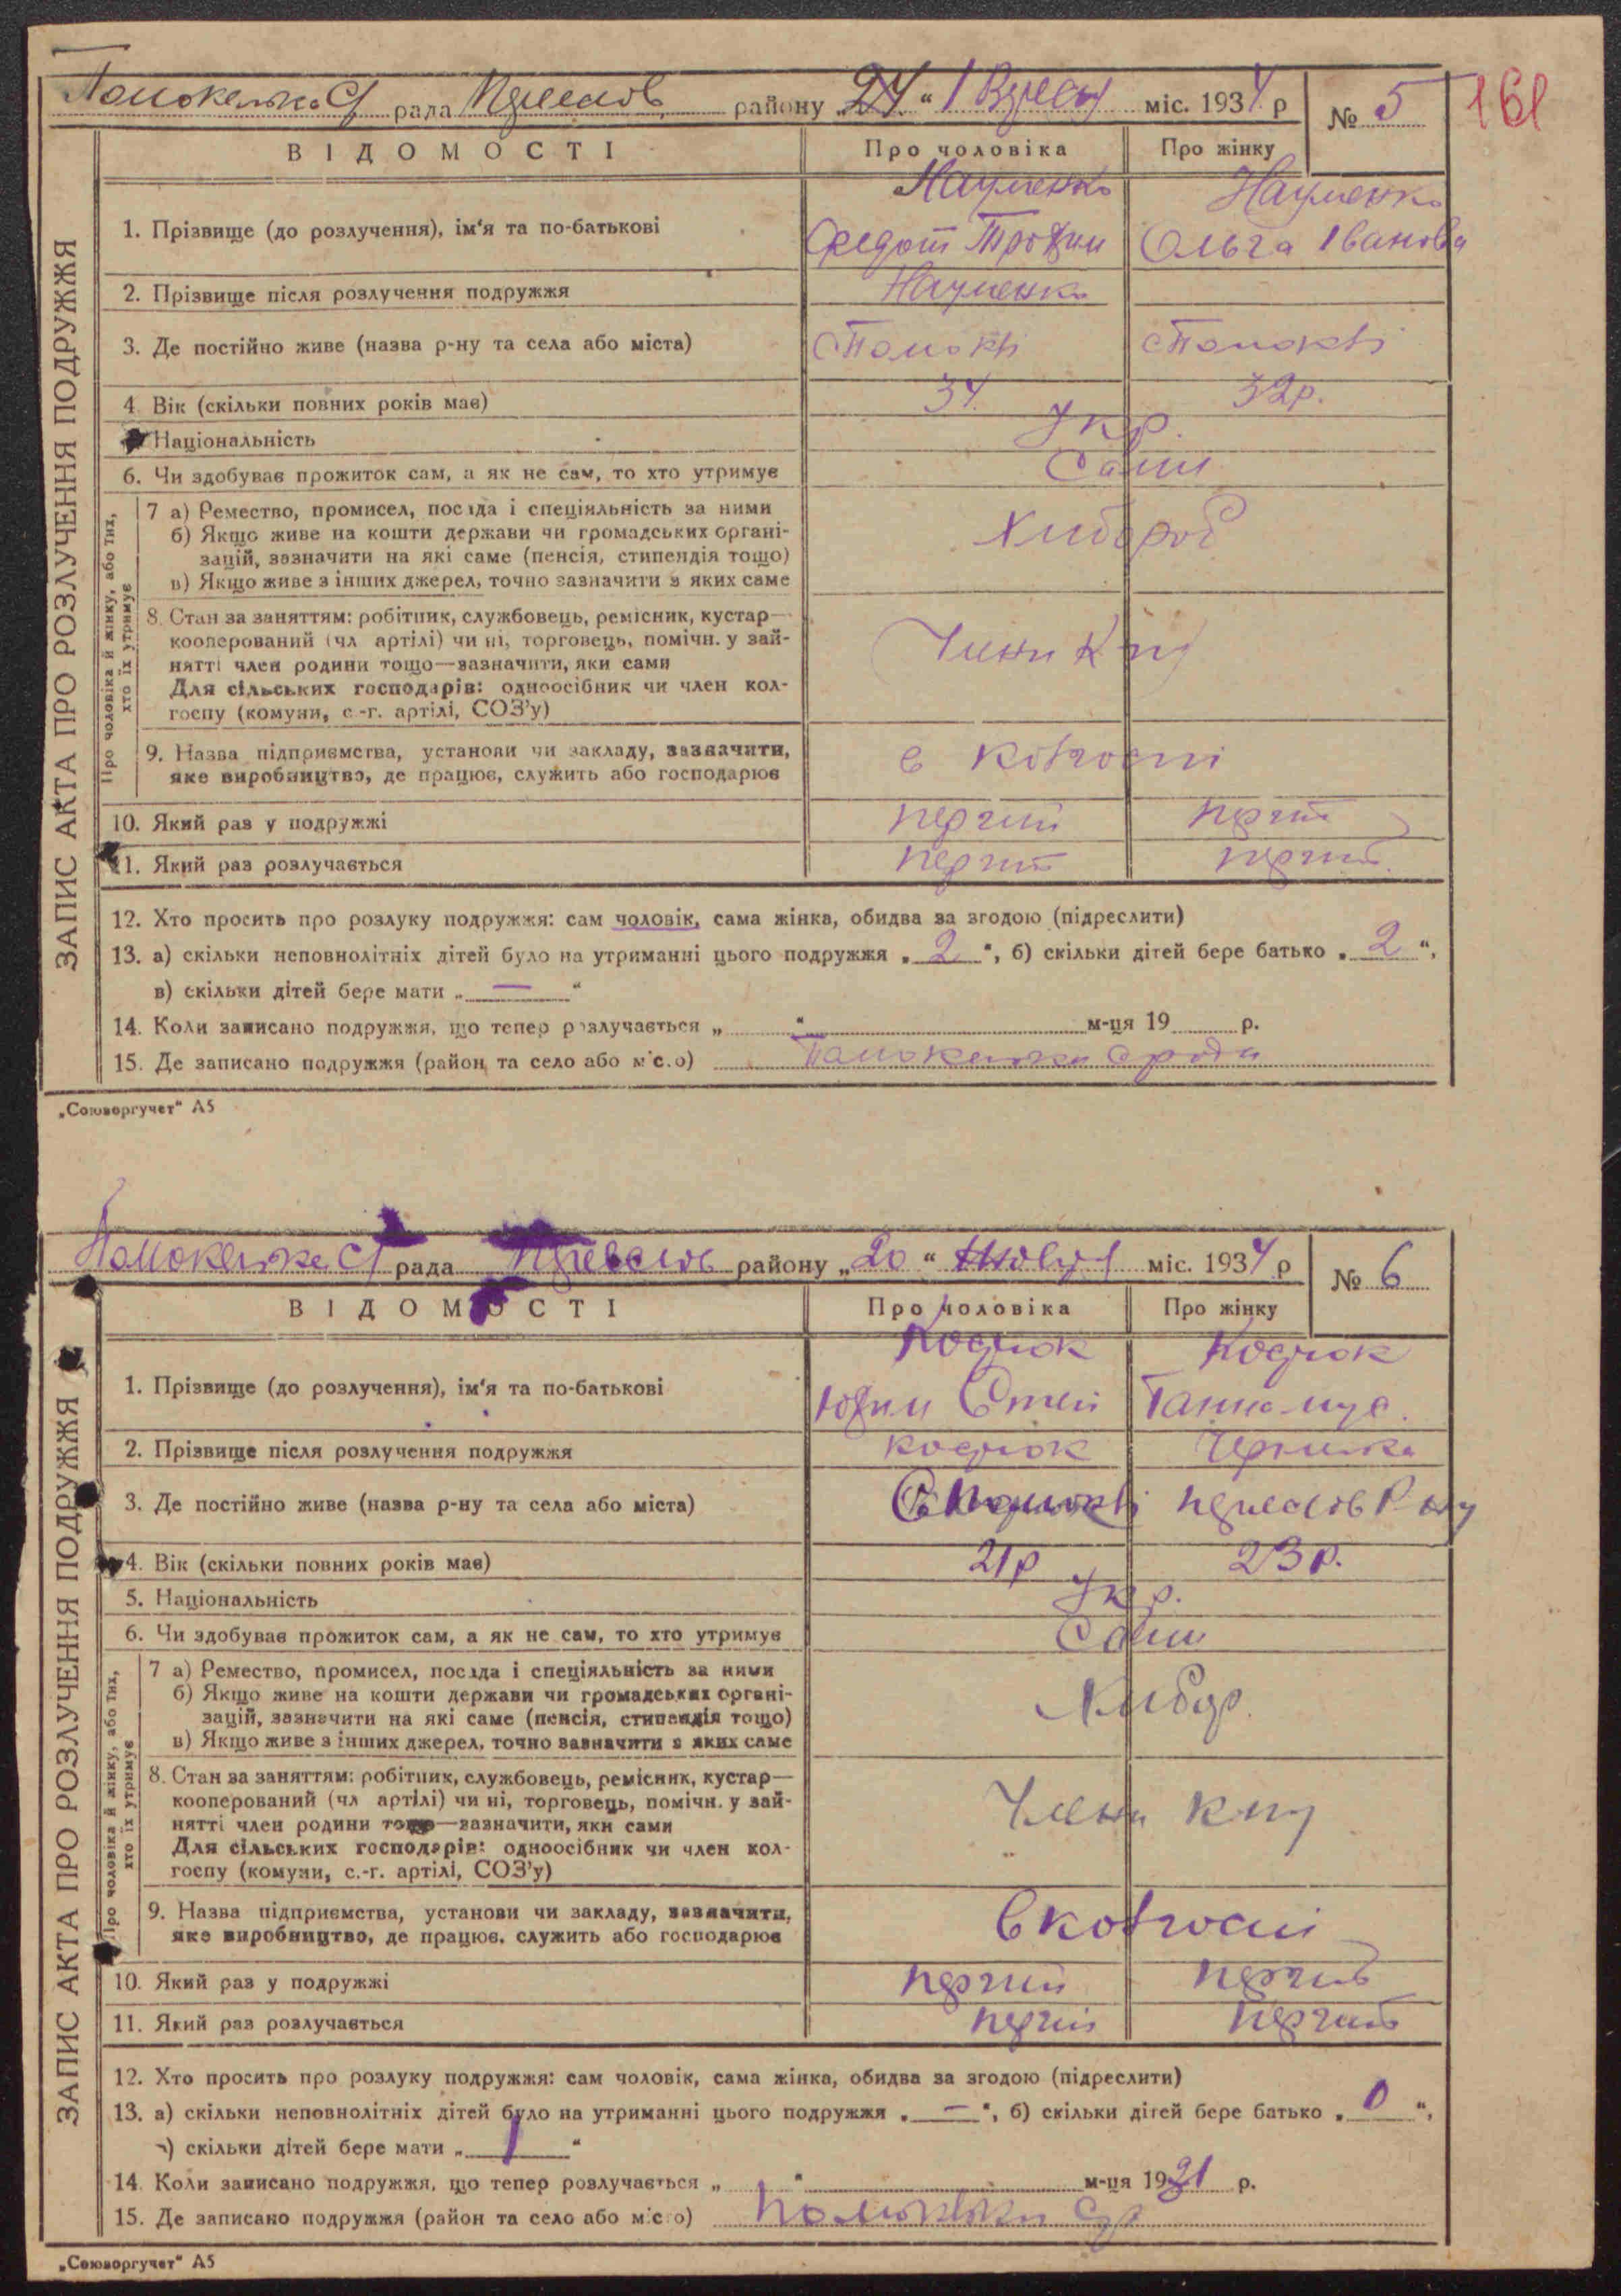 рада району „24“ 1 міс. 1934 р № 5 161
ВІДОМОСТІ Про чоловіка Про жінку
Науменко Науменко
1. Прізвище (до розлучення), ім'я та по-батькові
Федот Ольга Іванова
2. Прізвище після розлучення подружжя Науменко
3. Де постійно живе (назва р-ну та села або міста)
4 Вік (скільки повних років має) 34 32р.
Національність Укр.
6. Чи здобуває прожиток сам, а як не сам, то хто утримує Сами
7 а) Ремество, промисел, посада і спеціяльність за ними
б) Якщо живе на кошти держави чи громадських органі-
зацій, зазначити на які саме (пенсія, стипендія тощо)
в) Якщо живе з інших джерел, точно зазначити з яких саме
Хлібороб
8. Стан за заняттям: робітник, службовець, ремісник, кустар—
кооперований (чл артілі) чи ні, торговець, помічн. у зай-
нятті член родини тощо—зазначити, яки сами
Для сільських господарів: одноосібник чи член кол-
госпу (комуни, с.-г. артілі, СОЗ'у)
Члени
9. Назва підприємства, установи чи закладу, зазначити,
яке виробництво, де працює, служить або господарює
в колгоспі
10. Який раз у подружжі
11. Який раз розлучається
12. Хто просить про розлуку подружжя: сам чоловік, сама жінка, обидва за згодою (підреслити)
13. а) скільки неповнолітніх дітей було на утриманні цього подружжя „ 2 “, б) скільки дітей бере батько „ 2 “,
в) скільки дітей бере мати „ — “
14. Коли записано подружжя, що тепер розлучається „ “ м-ця 19 р.
15. Де записано подружжя (район та село або місто)
„Союзоргучет“ А5
ЗАПИС АКТА ПРО РОЗЛУЧЕННЯ ПОДРУЖЖЯ
Про чоловіка й жінку, або тих,
хто їх утримує
рада району „20“ міс. 1934 р № 6
ВІДОМОСТІ Про чоловіка Про жінку
1. Прізвище (до розлучення), ім'я та по-батькові
2. Прізвище після розлучення подружжя
3. Де постійно живе (назва р-ну та села або міста)
4. Вік (скільки повних років має) 21р 23р.
5. Національність Укр.
6. Чи здобуває прожиток сам, а як не сам, то хто утримує Сами
7 а) Ремество, промисел, посада і спеціяльність за ними
б) Якщо живе на кошти держави чи громадських органі-
зацій, зазначити на які саме (пенсія, стипендія тощо)
в) Якщо живе з інших джерел, точно зазначити з яких саме
8. Стан за заняттям: робітник, службовець, ремісник, кустар—
кооперований (чл артілі) чи ні, торговець, помічн. у зай-
нятті член родини тощо—зазначити, яки сами
Для сільських господарів: одноосібник чи член кол-
госпу (комуни, с.-г. артілі, СОЗ'у)
Члени
9. Назва підприємства, установи чи закладу, зазначити,
яке виробництво, де працює, служить або господарює
в колгоспі
10. Який раз у подружжі
11. Який раз розлучається
12. Хто просить про розлуку подружжя: сам чоловік, сама жінка, обидва за згодою (підреслити)
13. а) скільки неповнолітніх дітей було на утриманні цього подружжя „ — “, б) скільки дітей бере батько „ 0 “,
в) скільки дітей бере мати „ 1 “
14. Коли записано подружжя, що тепер розлучається „ “ м-ця 1931 р.
15. Де записано подружжя (район та село або місто)
„Союзоргучет“ А5
ЗАПИС АКТА ПРО РОЗЛУЧЕННЯ ПОДРУЖЖЯ
Про чоловіка й жінку, або тих,
хто їх утримує